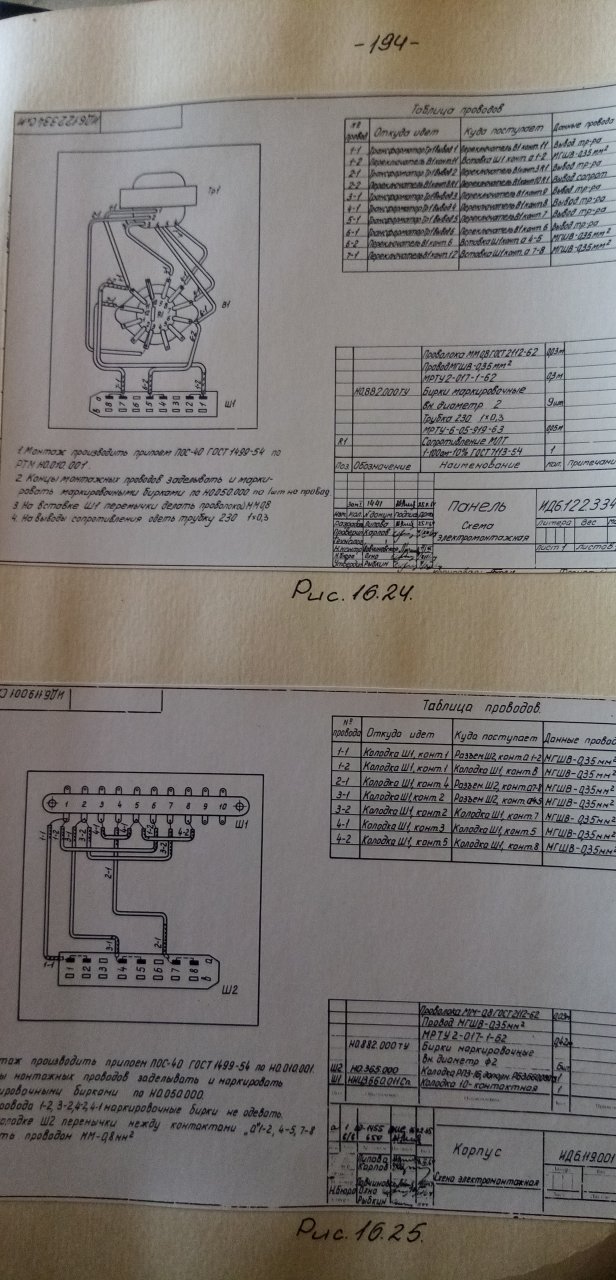 -194-
Таблица проводов
№ провод Откуда идет Куда поступает Данные провода
1-1 Трансформатор Тр1 Вывод 1 Переключатель В1 конт. 11 Вывод тр-ра
1-2 Переключатель В1 конт. 11 Вставка Ш1 конт. а 1-2 МГШВ-0,35мм²
2-1 Трансформатор Тр1 Вывод 2 Переключатель В1 конт. 3 R1 Вывод тр-ра
2-2 Вывод сопрот.
3-1 Трансформатор Тр1 Вывод 3 Переключатель В1 конт. 9 Вывод тр-ра
4-1 Трансформатор Тр1 Вывод 4 Переключатель В1 конт. 8 Вывод тр-ра
5-1 Трансформатор Тр1 Вывод 5 Переключатель В1 конт. 7 Вывод тр-ра
6-1 Трансформатор Тр1 Вывод 6 Переключатель В1 конт. 6 Вывод тр-ра
6-2 Переключатель В1 конт. 6 Вставка Ш1 конт. а 4-5 МГШВ-0,35мм²
7-1 Переключатель В1 конт. 12 Вставка Ш1 конт. а 7-8 МГШВ-0,35мм²
Тр1
В1
8 7 6 5 4 3 2 1
Ш1
Проволока ММ 0,8 ГОСТ 2112-62 0,03м
Провод МГШВ-0,35мм²
МРТУ 2-017-1-62 0,3м
Н0.882.000ТУ Бирки маркировочные
вн. диаметр 2 9шт
Трубка 230 1×0,3
МРТУ-6-05-919-63 0,05м
R1 Сопротивление МЛТ
1-100ом-10% ГОСТ 7113-54 1
Поз. Обозначение Наименование Кол. Примечани
1. Монтаж производить припоем ПОС-40 ГОСТ 1490-54 по
РТМ Н0.010.001
2. Концы монтажных проводов заделывать и марки-
ровать маркировочными бирками по Н0.050.000 по 1шт на провод
3. На вставке Ш1 перемычки делать проволокой ММ 0,8
4. На выводы сопротивления одеть трубку 230 1×0,3
Панель
Схема
электромонтажная
ИД6.122.334
Литера Вес
Лист 1 Листов
Рис. 16.24.
Таблица проводов.
№ провода Откуда идет Куда поступает Данные провод
1-1 Колодка Ш1, конт. 1 Разъем Ш2, конт. а 1-2 МГШВ-0,35мм²
1-2 Колодка Ш1, конт. 1 Колодка Ш1, конт. 6 МГШВ-0,35мм²
2-1 Колодка Ш1, конт. 4 Разъем Ш2, конт. а 7-8 МГШВ-0,35мм²
3-1 Колодка Ш1, конт. 2 Разъем Ш2, конт. а 4-5 МГШВ-0,35мм²
3-2 Колодка Ш1, конт. 2 Колодка Ш1, конт. 7 МГШВ-0,35мм²
4-1 Колодка Ш1, конт. 3 Колодка Ш1, конт. 5 МГШВ-0,35мм²
4-2 Колодка Ш1, конт. 5 Колодка Ш1, конт. 8 МГШВ-0,35мм²
1 2 3 4 5 6 7 8 9 10
Ш1
1-1 1-2 3-2 4-1 4-1 1-2 3-2 4-2
2-1
3-1 2-1
1 2 3 4 5 6 7 8
Ш2
Проволока ММ-0,8 ГОСТ 2112-62 0,03м
Провод МГШВ-0,35мм²
МРТУ 2-017-1-62 0,42м
Н0.882.000 ТУ Бирки маркировочные
вн. диаметр ф2 6шт
Ш2 Н0.365.000
Ш1 Колодка 10-контактная 1
таж производить припоем ПОС-40 ГОСТ 1499-54 по Н0.010.001.
ы монтажных проводов заделывать и маркировать
ировочными бирками по Н0.050.000.
ровода 1-2, 3-2, 4-2, 4-1 маркировочные бирки не одевать.
олодке Ш2 перемычки между контактами „а"1-2, 4-5, 7-8
ть проводом ММ-0,8мм²
Корпус
Схема электромонтажная
ИД6.119.001
Рис. 16.25.